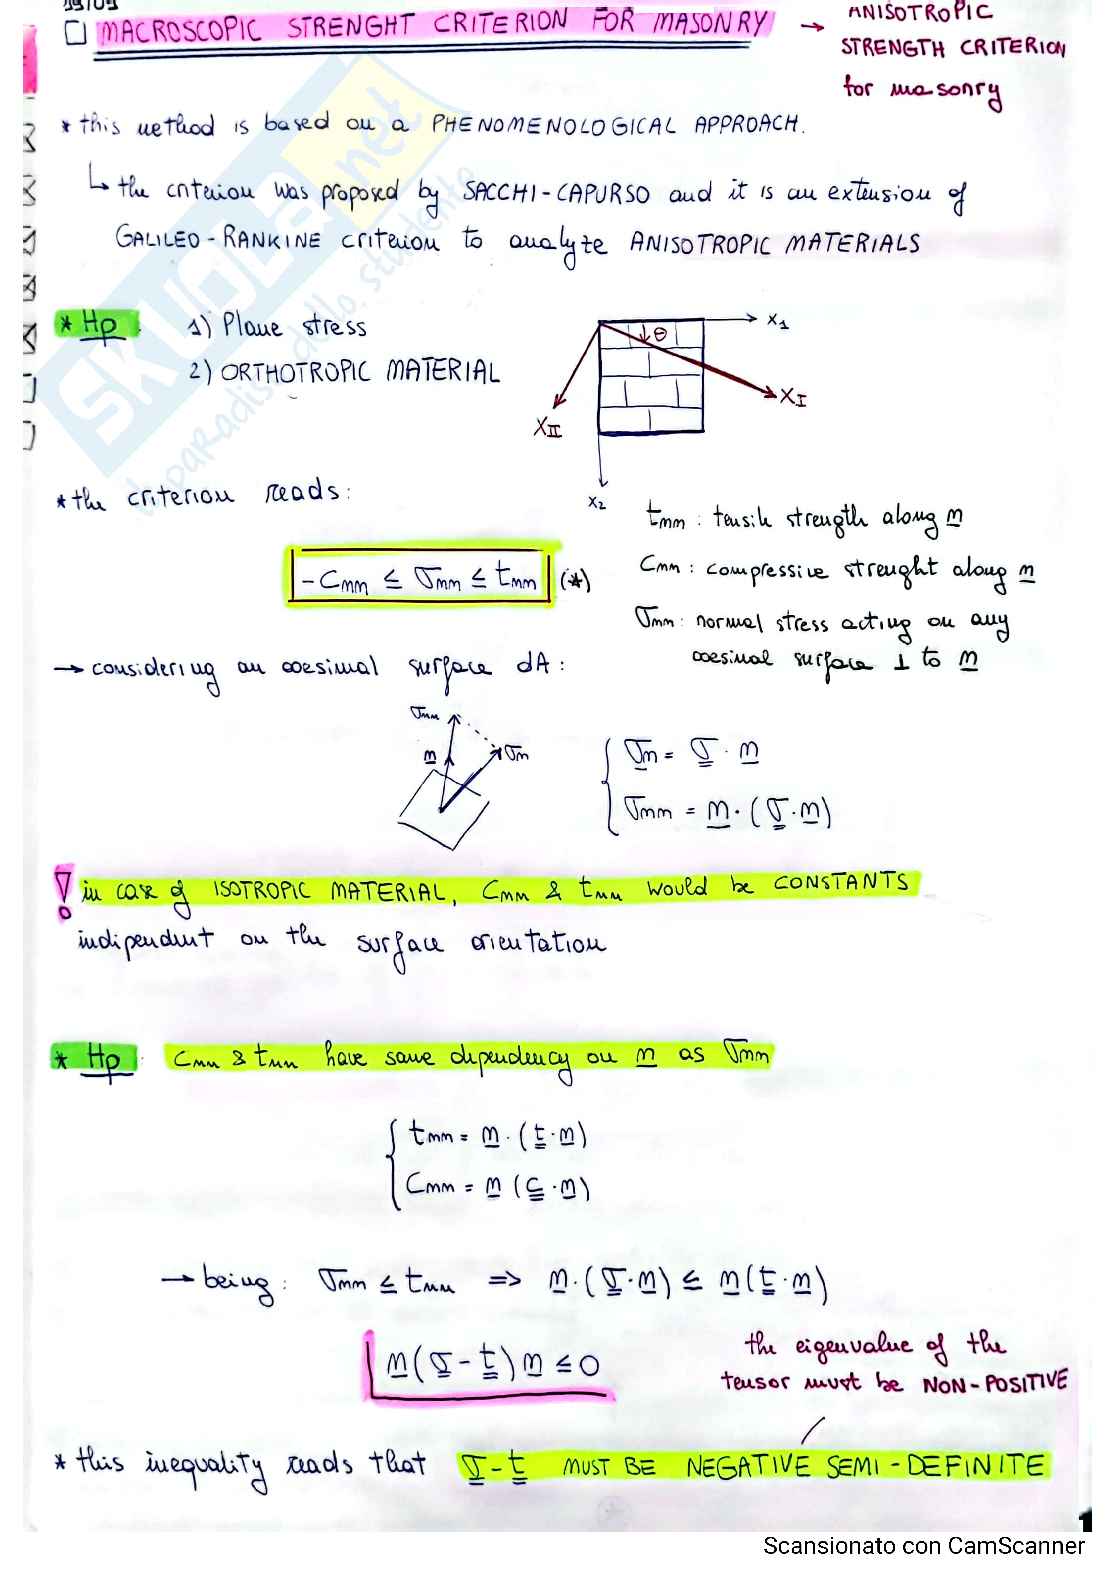 19/09
MACROSCOPIC STRENGHT CRITERION FOR MASONRY → ANISOTROPIC
STRENGTH CRITERION
for masonry
* this method is based on a PHENOMENOLOGICAL APPROACH.
↳ the criterion was proposed by SACCHI-CAPURSO and it is an extension of
GALILEO-RANKINE criterion to analyze ANISOTROPIC MATERIALS
* Hp 1) Plane stress
2) ORTHOTROPIC MATERIAL
x1
θ
XI
XII
x2
* the criterion reads:
-Cnn ≤ σnn ≤ tnn (*)
tnn: tensile strength along n
Cnn: compressive strenght along n
σnn: normal stress acting on any
∞esimal surface ⊥ to n
→ considering an ∞esimal surface dA:
σnn
n
σn
σn = σ · n
σnn = n · (σ · n)
! in case of ISOTROPIC MATERIAL, Cnn & tnn would be CONSTANTS
indipendent on the surface orientation
* Hp: Cnn & tnn have same dependency on n as σnn
tnn = n · (t · n)
Cnn = n (c · n)
→ being: σnn ≤ tnn => n · (σ · n) ≤ n (t · n)
n (σ - t) n ≤ 0
the eigenvalue of the
tensor must be NON-POSITIVE
* this inequality reads that σ - t MUST BE NEGATIVE SEMI-DEFINITE
1
Scansionato con CamScanner
SKUOLA.net
il paradiso dello studente